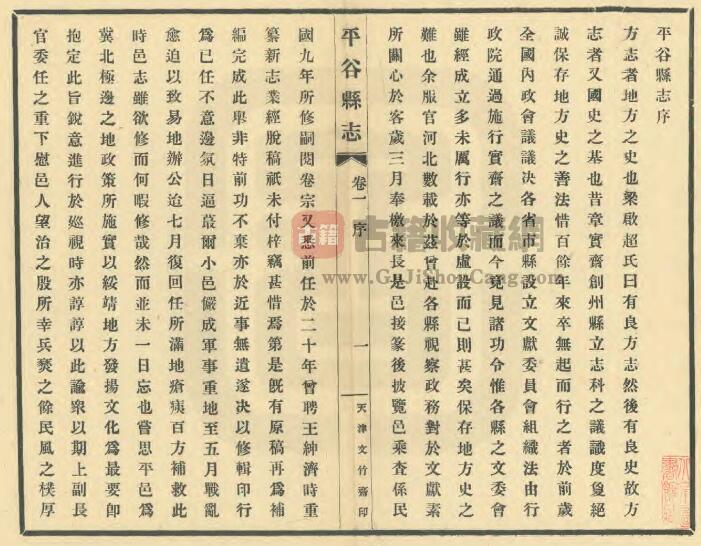 平谷縣志序
方志者地方之史也梁啟超氏曰有良方志然後有良史故方
志者又國史之基也昔章實齋創州縣立志科之議識度敻絕
誠保存地方史之善法惜百餘年來卒無起而行之者於前歲
全國內政會議議決各省市縣設立文獻委員會組織法由行
政院通過施行實齋之議而今竟見諸功令惟各縣之文委會
雖經成立多未厲行亦等於虛設而已則甚矣保存地方史之
難也余服官河北數載於茲曾赴各縣視察政務對於文獻素
所關心於客歲三月奉檄來長是邑接篆後披覽邑乘查係民
平谷縣志
卷一
序
一
天津文竹齋印
國九年所修嗣閱卷宗又悉前任於二十年曾聘王紳濟時重
纂新志業經脫稿祇未付梓竊甚惜焉第是既有原稿再為補
編完成此舉非特前功不棄亦於近事無遺遂決以修輯印行
為己任不意邊氛日逼蕞爾小邑儼成軍事重地至五月戰亂
愈迫以致易地辦公迨七月復回任所滿地瘡痍百方補救此
時邑志雖欲修而何暇修哉然而並未一日忘也嘗思平邑為
冀北極邊之地政策所施實以綏靖地方發揚文化為最要卽
抱定此旨銳意進行於巡視時亦諄諄以此諭衆以期上副長
官委任之重下慰邑人望治之殷所幸兵燹之餘民風之樸厚
古籍 古籍收藏網
www.GuJiShouCang.com